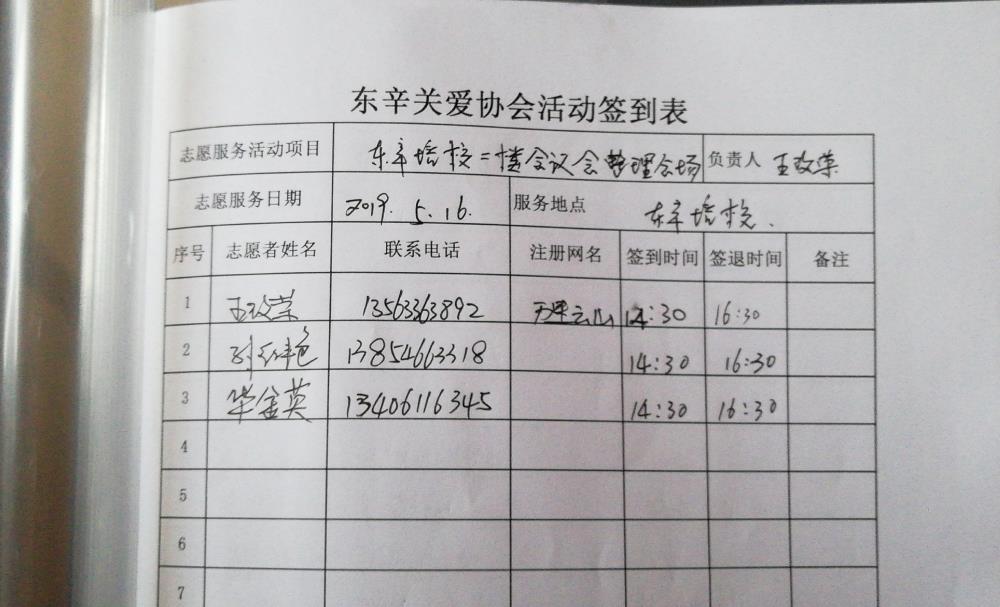 东辛关爱协会活动签到表
志愿服务活动项目 东辛培校二楼会议会整理会场 负责人 王改荣
志愿服务日期 2019.5.16. 服务地点 东辛培校.
序号 志愿者姓名 联系电话 注册网名 签到时间 签退时间 备注
1 王改荣 13563363892 云山 14:30 16:30
2 13854663318 14:30 16:30
3 毕金英 13406116345 14:30 16:30
4
5
6
7